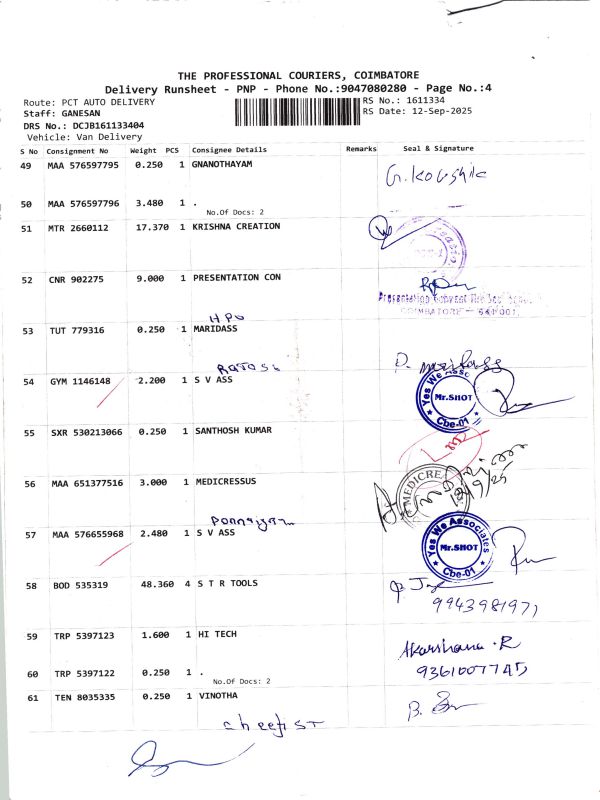 THE PROFESSIONAL COURIERS, COIMBATORE
Delivery Runsheet - PNP - Phone No.:9047080280 - Page No.:4
Route: PCT AUTO DELIVERY
RS No.: 1611334
Staff: GANESAN
RS Date: 12-Sep-2025
DRS No.: DCJB161133404
Vehicle: Van Delivery
S No Consignment No Weight PCS Consignee Details Remarks Seal & Signature
49 MAA 576597795 0.250 1 GNANOTHAYAM
G. Koushik
50 MAA 576597796 3.480 1 .
No.Of Docs: 2
51 MTR 2660112 17.370 1 KRISHNA CREATION
52 CNR 902275 9.000 1 PRESENTATION CON
Presentation Convent
COIMBATORE - 641 001.
53 TUT 779316 0.250 1 MARIDASS
54 GYM 1146148 2.200 1 S V ASS
Yes We Associates
Mr.SHOT
Cbe-01
55 SXR 530213066 0.250 1 SANTHOSH KUMAR
56 MAA 651377516 3.000 1 MEDICRESSUS
MEDICRE
57 MAA 576655968 2.480 1 S V ASS
Yes We Associates
Mr.SHOT
Cbe-01
58 BOD 535319 48.360 4 S T R TOOLS
9943981971
59 TRP 5397123 1.600 1 HI TECH
Akarshana . R
9361007745
60 TRP 5397122 0.250 1 .
No.Of Docs: 2
61 TEN 8035335 0.250 1 VINOTHA